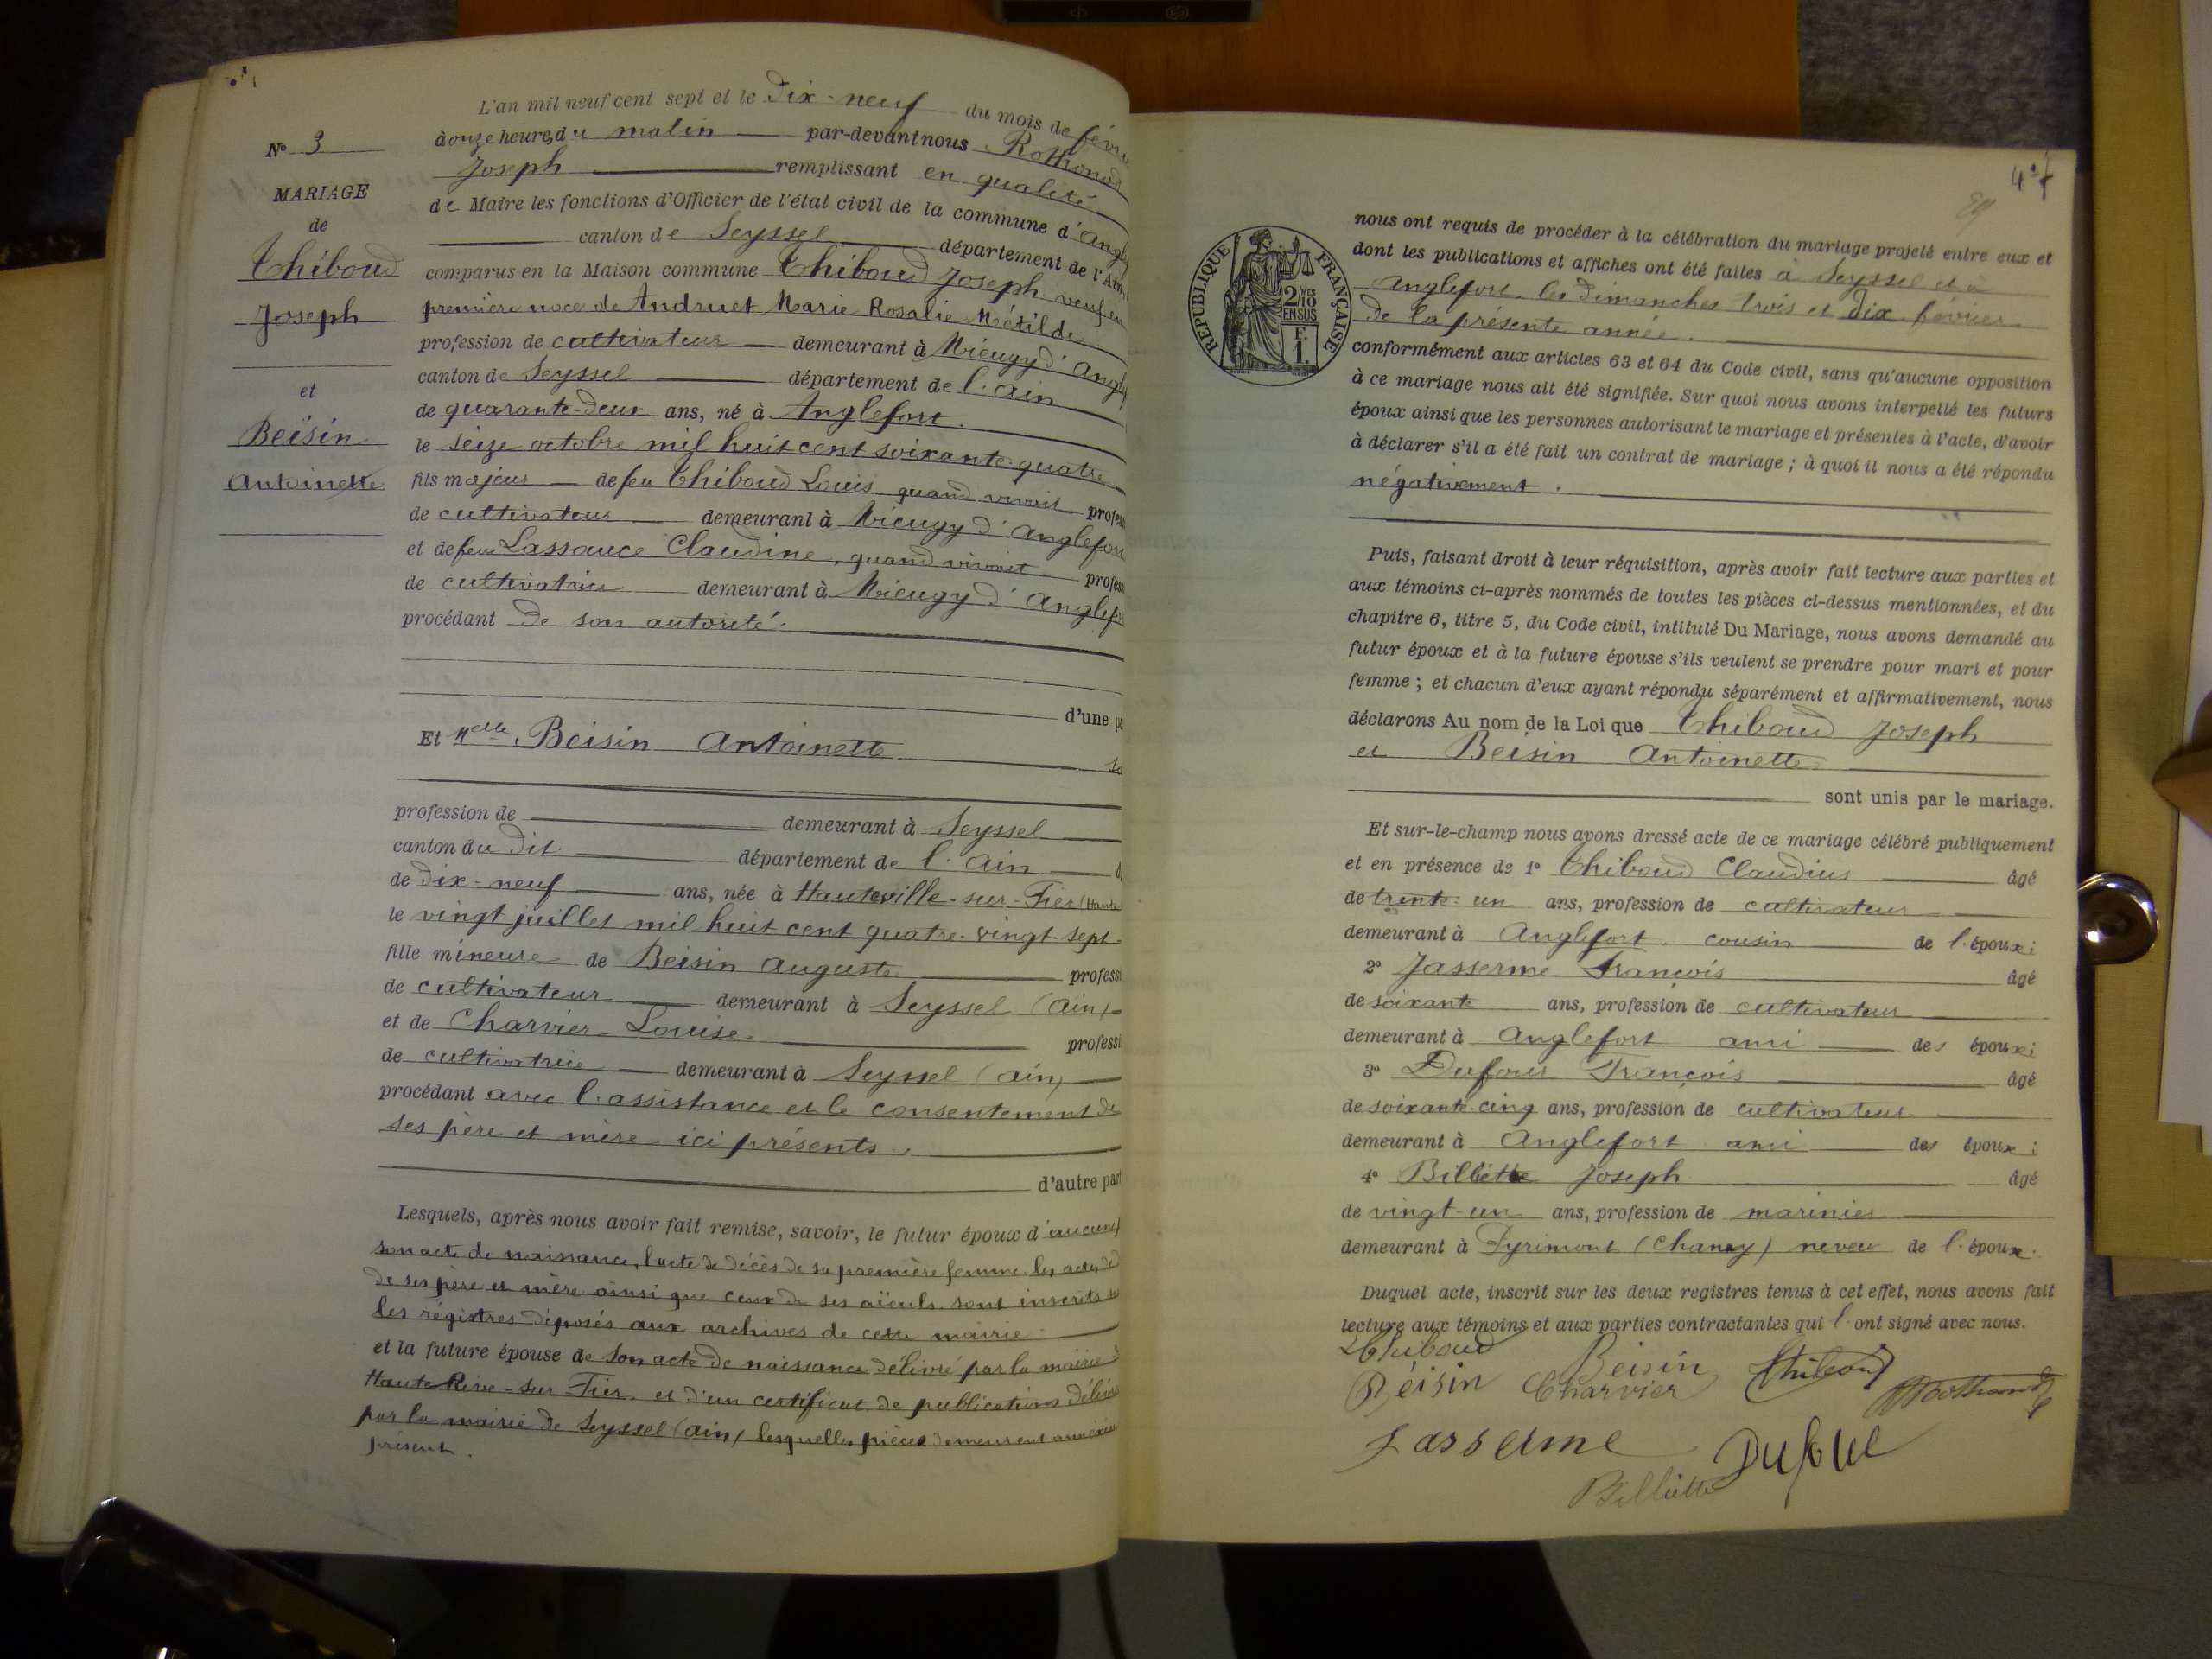 L'an mil neuf cent sept et le Dix-neuf du mois de févri
N° 3
à onze heures du matin par-devant nous Rothonod
Joseph remplissant en qualité
MARIAGE
de Maire les fonctions d'Officier de l'état civil de la commune d'Angl
de
canton de Seyssel département de l'Ain
Thiboud
comparus en la Maison commune Thiboud Joseph veuf en
Joseph
première noce de Andruet Marie Rosalie Métilde
profession de cultivateur demeurant à Mieugy d'Angl
et
canton de Seyssel département de l'Ain
de quarante-deux ans, né à Anglefort.
Beisin
le seize octobre mil huit cent soixante-quatre
Antoinette
fils majeur de feu Thiboud Louis quand vivait profess
de cultivateur demeurant à Mieugy d'Anglefort
et de feu Lassauce Claudine, quand vivait profess
de cultivatrice demeurant à Mieugy d'Anglef
procédant de son autorité.
d'une pa
Et Melle Beisin Antoinette
profession de demeurant à Seyssel
canton du dit département de l'Ain
de dix-neuf ans, née à Hauteville-sur-Fier (Haute
le vingt juillet mil huit cent quatre-vingt-sept
fille mineure de Beisin Auguste professi
de cultivateur demeurant à Seyssel (Ain)
et de Charvier Louise professi
de cultivatrice demeurant à Seyssel (Ain)
procédant avec l'assistance et le consentement de
ses père et mère ici présents.
d'autre part
Lesquels, après nous avoir fait remise, savoir, le futur époux d'aucun
son acte de naissance, l'acte de décès de sa première femme, les actes de
de ses père et mère ainsi que ceux de ses aïeuls sont inscrits
les régistres déposés aux archives de cette mairie
et la future épouse de son acte de naissance délivré par la mairie
-sur-Fier, et d'un certificat de publications délivré
par la mairie de Seyssel (Ain) lesquelles pièces demeurent
présent.
4
nous ont requis de procéder à la célébration du mariage projeté entre eux et
dont les publications et affiches ont été faites à Seyssel et à
Anglefort les dimanches trois et dix février
de la présente année.
RÉPUBLIQUE FRANÇAISE
2/10 EN SUS
F. 1.
conformément aux articles 63 et 64 du Code civil, sans qu'aucune opposition
à ce mariage nous ait été signifiée. Sur quoi nous avons interpellé les futurs
époux ainsi que les personnes autorisant le mariage et présentes à l'acte, d'avoir
à déclarer s'il a été fait un contrat de mariage ; à quoi il nous a été répondu
négativement.
Puis, faisant droit à leur réquisition, après avoir fait lecture aux parties et
aux témoins ci-après nommés de toutes les pièces ci-dessus mentionnées, et du
chapitre 6, titre 5, du Code civil, intitulé Du Mariage, nous avons demandé au
futur époux et à la future épouse s'ils veulent se prendre pour mari et pour
femme ; et chacun d'eux ayant répondu séparément et affirmativement, nous
déclarons Au nom de la Loi que Thiboud Joseph
et Beisin Antoinette
sont unis par le mariage.
Et sur-le-champ nous avons dressé acte de ce mariage célébré publiquement
et en présence de 1° Thiboud Claudius âgé
de trente-un ans, profession de cultivateur
demeurant à Anglefort cousin de l'époux ;
2° Jasserme François âgé
de soixante ans, profession de cultivateur
demeurant à Anglefort ami des époux ;
3° Dufour François âgé
de soixante-cinq ans, profession de cultivateur
demeurant à Anglefort ami des époux ;
4° Billiette Joseph âgé
de vingt-un ans, profession de marinier
demeurant à Pyrimont (Chanay) neveu de l'époux.
Duquel acte, inscrit sur les deux registres tenus à cet effet, nous avons fait
lecture aux témoins et aux parties contractantes qui l'ont signé avec nous.
Thiboud
Béisin Beisin Thiboud
Charvier Rothonod
Jasserme Dufour
Billiette